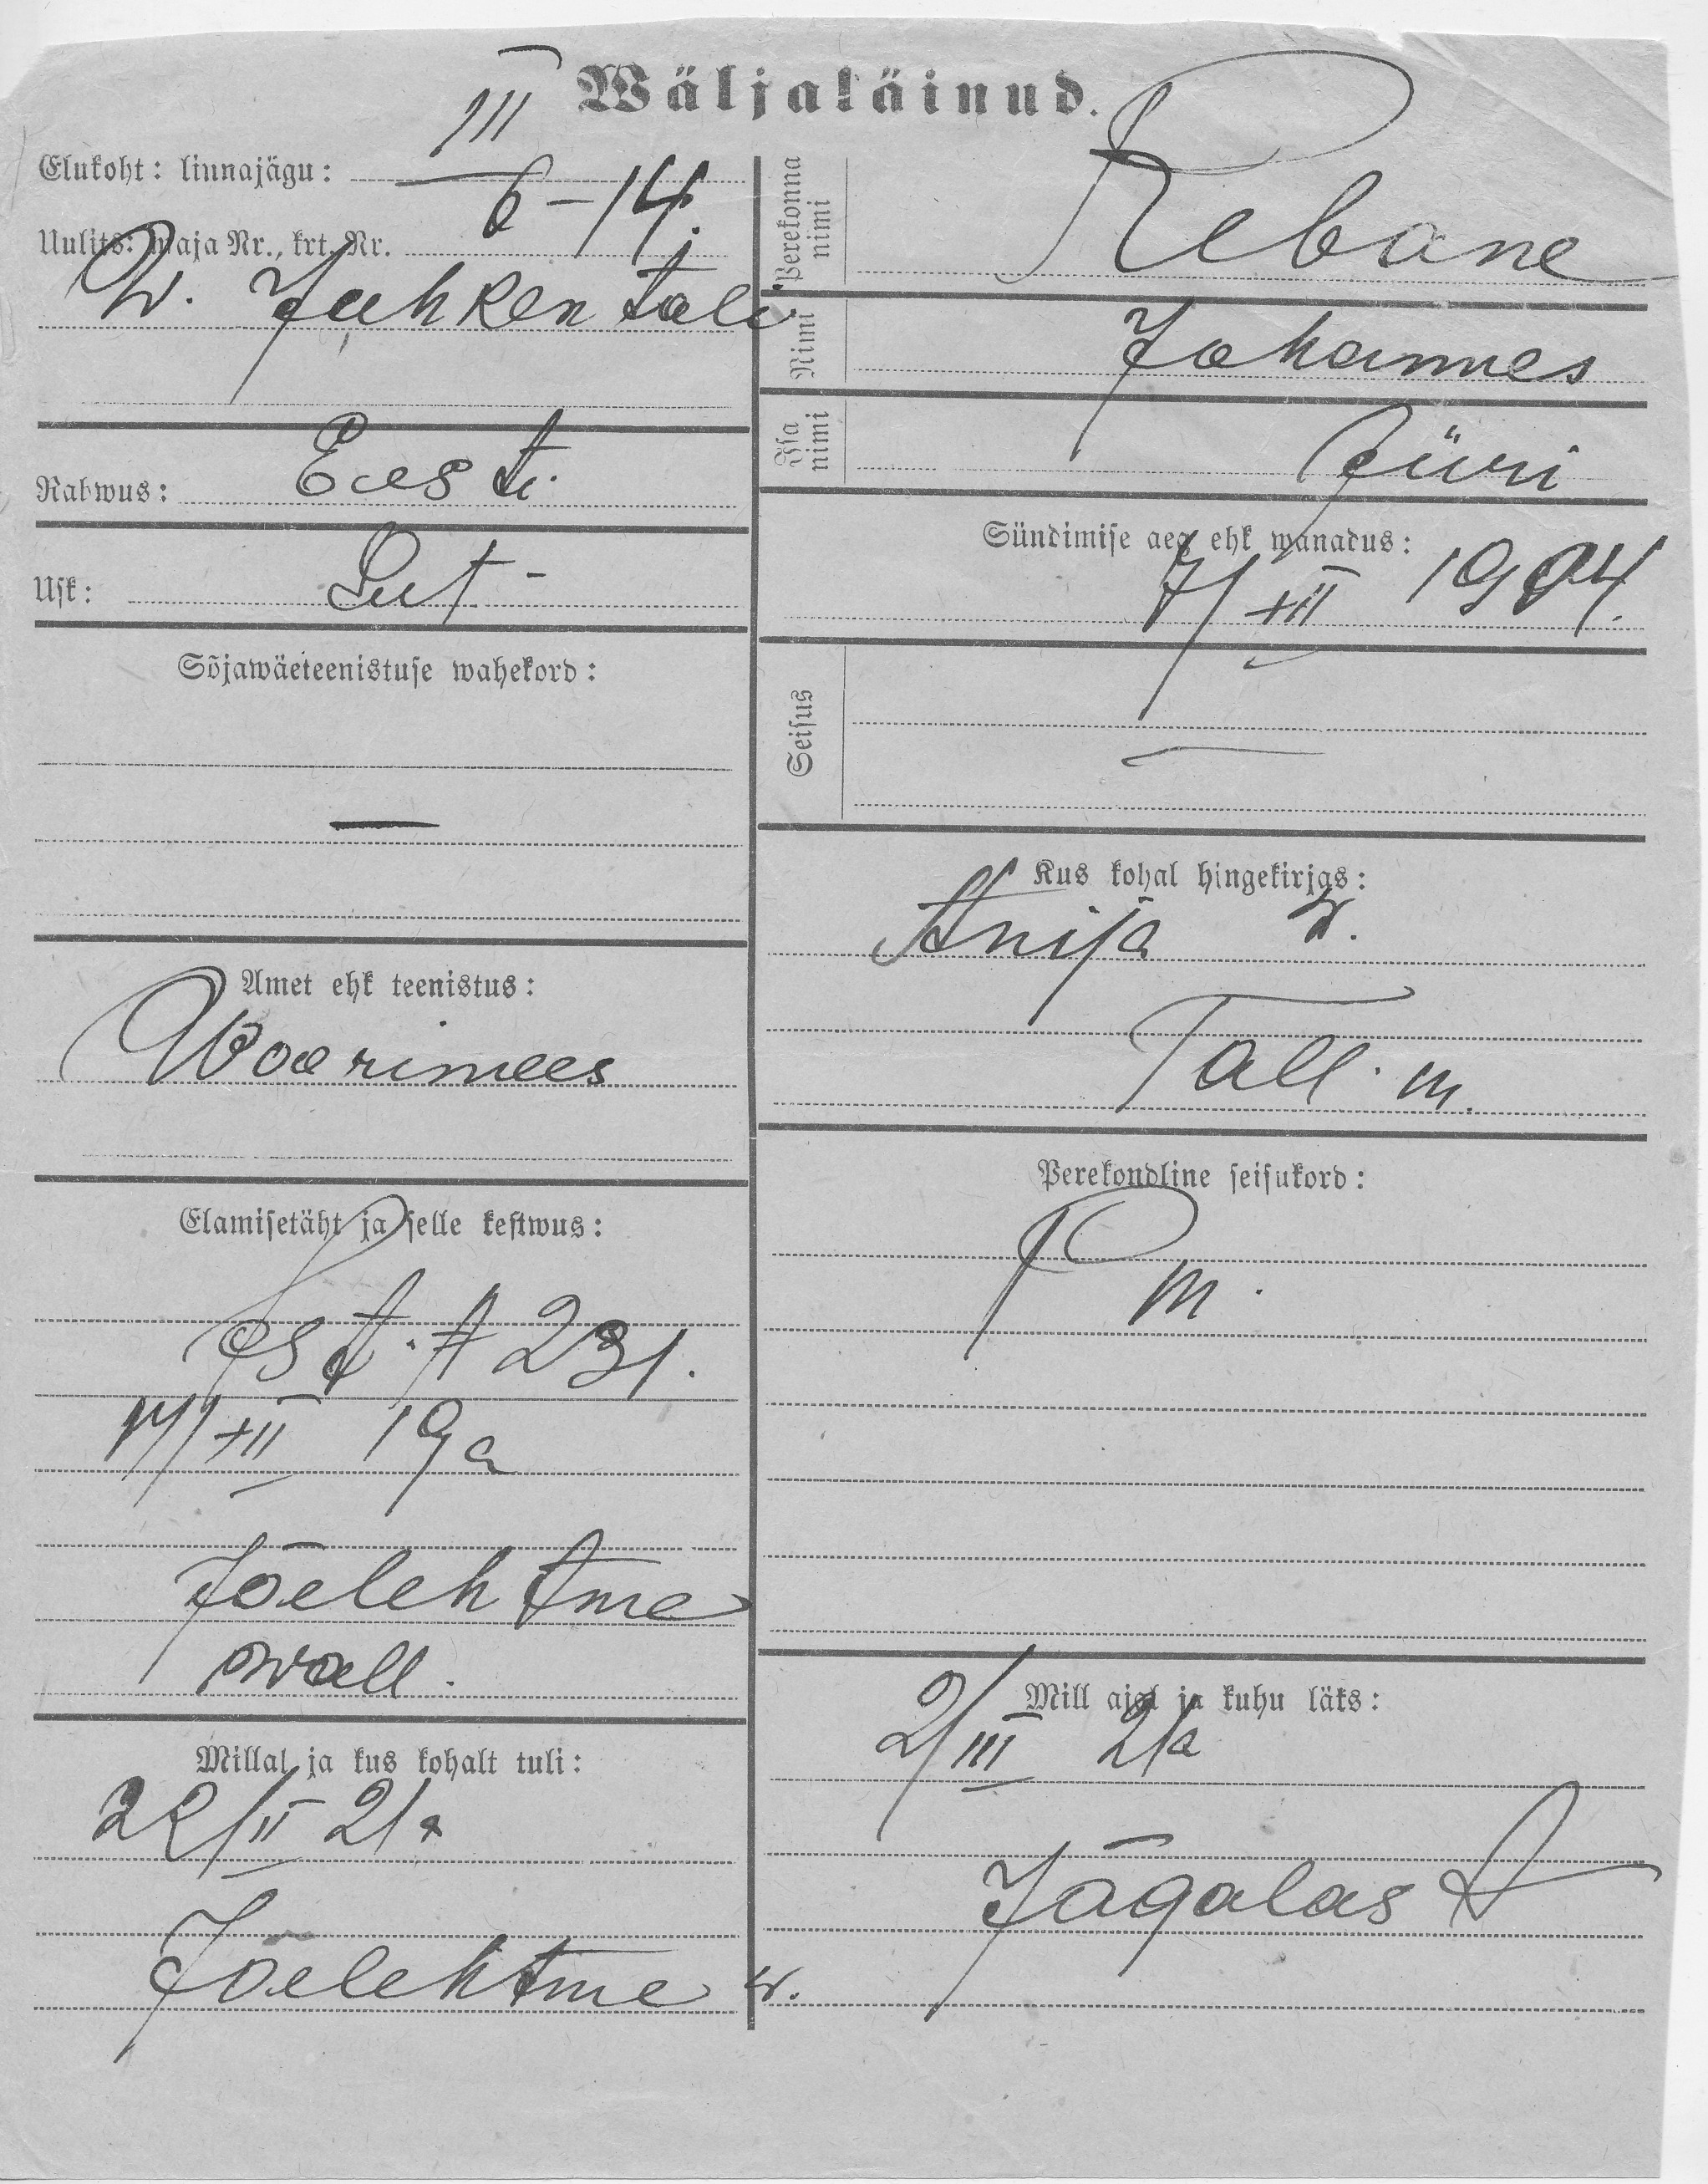 Wäljakäinud.
Elukoht: linnajagu: III
Uulits: maja Nr., krt. Nr. 6-14.
W. Juhkentali
Rahwus: Eesti
Usk: Lut-
Sõjawäeteenistuse wahekord:
—
Amet ehk teenistus:
Woorimees
Elamisetäht ja selle kestwus:
A 231.
14/XII 19 a
Jõelehtme
wall.
Millal ja kus kohalt tuli:
22/II 21 a
Jõelehtme w.
Perekonna nimi
Rebane
Nimi
Johannes
Isa nimi
Jüri
Sündimise aeg ehk wanadus:
7/XII 1904.
Seisus
—
Kus kohal hingekirjas:
Anija w.
Tall. m.
Perekondline seisukord:
P m.
Mill ajal ja kuhu läks:
2/III 21 a
Jägalas